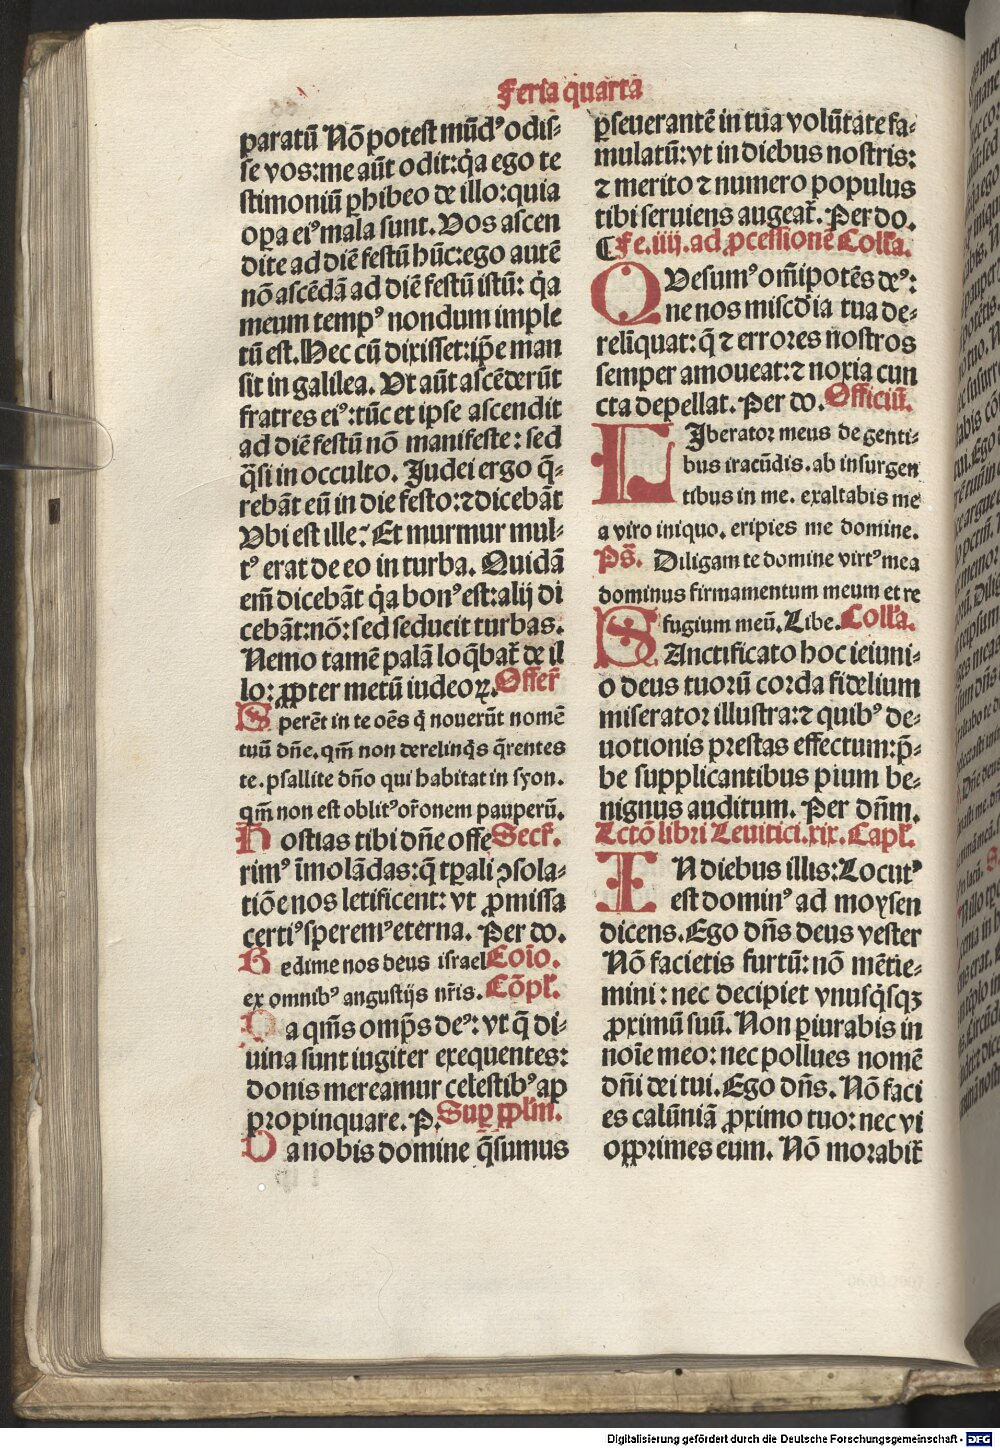 Feria quarta
paratū Nō potest mūdꝰ odis-
se vos: me aūt odit: q̇a ego te
stimoniū ꝑhibeo de illo: quia
oꝑa eiꝰ mala sunt. Vos ascen
dite ad diē festū hūc: ego autē
nō ascēdā ad diē festū istū: q̇a
meum tempꝰ nondum imple
tū est. Hec cū dixisset: ip̄e man
sit in galilea. Vt aūt ascēderūt
fratres eiꝰ: tūc et ipse ascendit
ad diē festū nō manifeste: sed
q̄si in occulto. Judei ergo q̄-
rebāt eū in die festo: ⁊ dicebāt
Vbi est ille? Et murmur mul-
tꝰ erat de eo in turba. Quidā
em̄ dicebāt q̇a bonꝰ est: alij di
cebāt: nō: sed seducit turbas.
Nemo tamē palā loq̄bat̄ de il
lo: ꝓpter metū iudeoꝝ. Offer̄
Sperēt in te oēs q̇ nouerūt nomē
tuū dn̄e. qm̄ non derelinq̇s q̄rentes
te. psallite dn̄o qui habitat in syon.
qm̄ non est oblitꝰ or̄onem pauperū.
Hostias tibi dn̄e offe Secr̄.
rimꝰ īmolādas: q̄ tꝑali ↄsola-
tiōe nos letificent: vt ꝓmissa
certiꝰ speremꝰ eterna. Per do.
Redime nos deus israel Coīo.
ex omnibꝰ angustijs nr̄is. Cōpl̄.
Da qm̄s omp̄s deꝰ: vt q̄ di-
uina sunt iugiter exequentes:
donis mereamur celestibꝰ ap
propinquare. P. Sup ꝓpl̄m.
Da nobis domine q̄sumus
ꝑseuerantē in tua volūtate fa-
mulatū: vt in diebus nostris:
⁊ merito ⁊ numero populus
tibi seruiens augeat̄. Per do.
¶ Fe. iiij. ad ꝓcessionē Coll̄a.
QVesumꝰ om̄ipotēs deꝰ:
ne nos misc̄dia tua de-
relīquat: q̄ ⁊ errores nostros
semper amoueat: ⁊ noxia cun
cta depellat. Per do. Officiū.
LIberator meus de genti-
bus iracūdis. ab insurgen
tibus in me. exaltabis me
a viro iniquo. eripies me domine.
Ps̄. Diligam te domine virtꝰ mea
dominus firmamentum meum et re
fugium meū. Libe. Coll̄a.
SAnctificato hoc ieiuni-
o deus tuorū corda fidelium
miserator illustra: ⁊ quibꝰ de-
uotionis prestas effectum: p̄-
be supplicantibus pium be-
nignus auditum. Per dn̄m.
Lctō libri Leuitici. xix. Capl̄.
IN diebus illis: Locutꝰ
est dominꝰ ad moysen
dicens. Ego dn̄s deus vester
Nō facietis furtū: nō mētie-
mini: nec decipiet vnusq̇sqꝫ
ꝓximū suū. Non ꝑiurabis in
noīe meo: nec pollues nomē
dn̄i dei tui. Ego dn̄s. Nō faci
es calūniā ꝓximo tuo: nec vi
oꝓprimes eum. Nō morabit̄
Digitalisierung gefördert durch die Deutsche Forschungsgemeinschaft - DFG